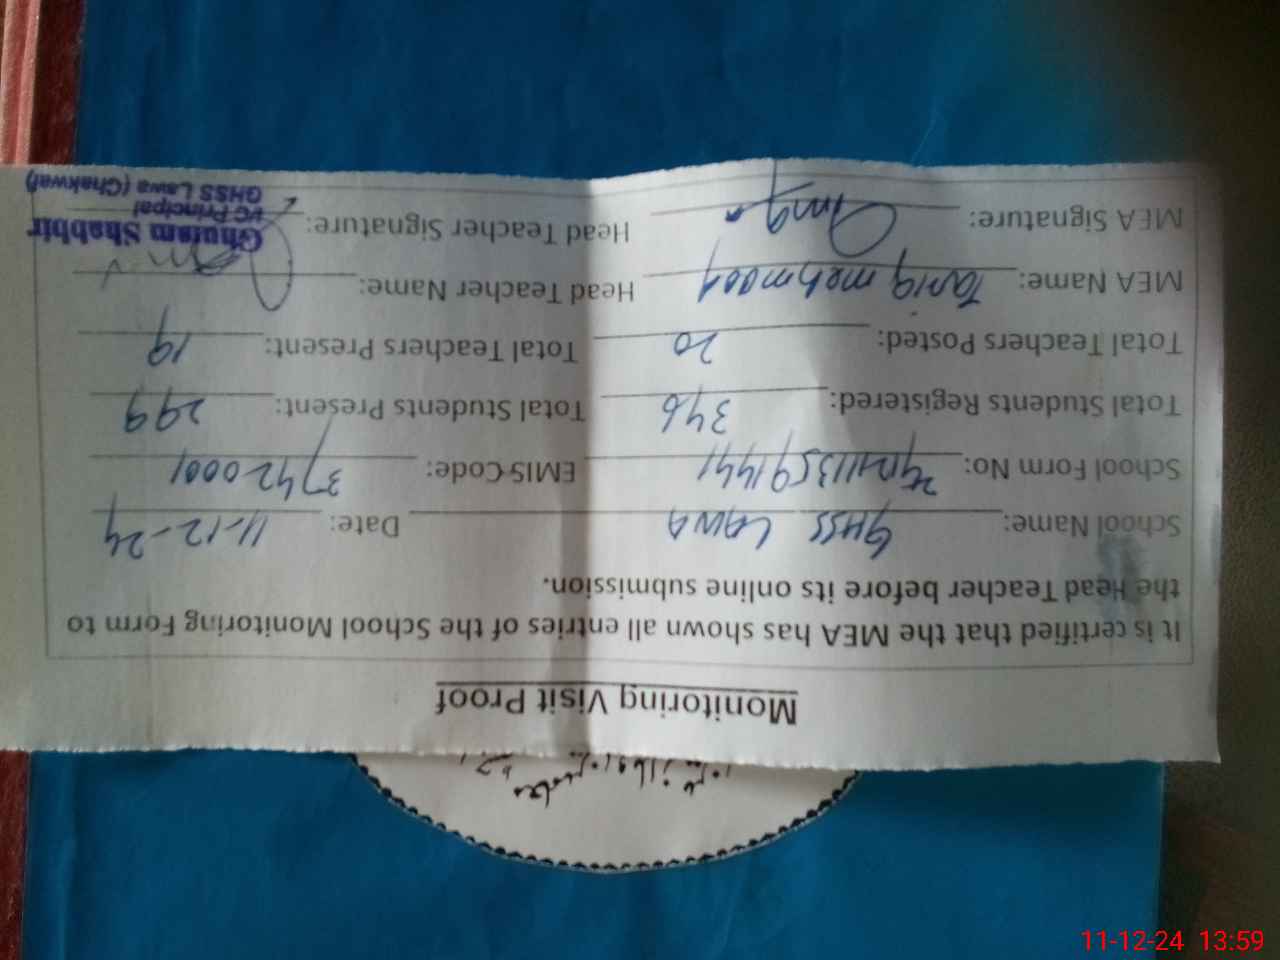 Monitoring Visit Proof
It is certified that the MEA has shown all entries of the School Monitoring Form to
the Head Teacher before its online submission.
School Name: GHSS LAWA Date: 11-12-24
School Form No: EMIS Code: 37420001
Total Students Registered: 346 Total Students Present: 299
Total Teachers Posted: 20 Total Teachers Present: 19
MEA Name: Tariq mehmood Head Teacher Name:
MEA Signature: Head Teacher Signature:
Ghulam Shabbir
I/C Principal
GHSS Lawa (Chakwal)
11-12-24 13:59